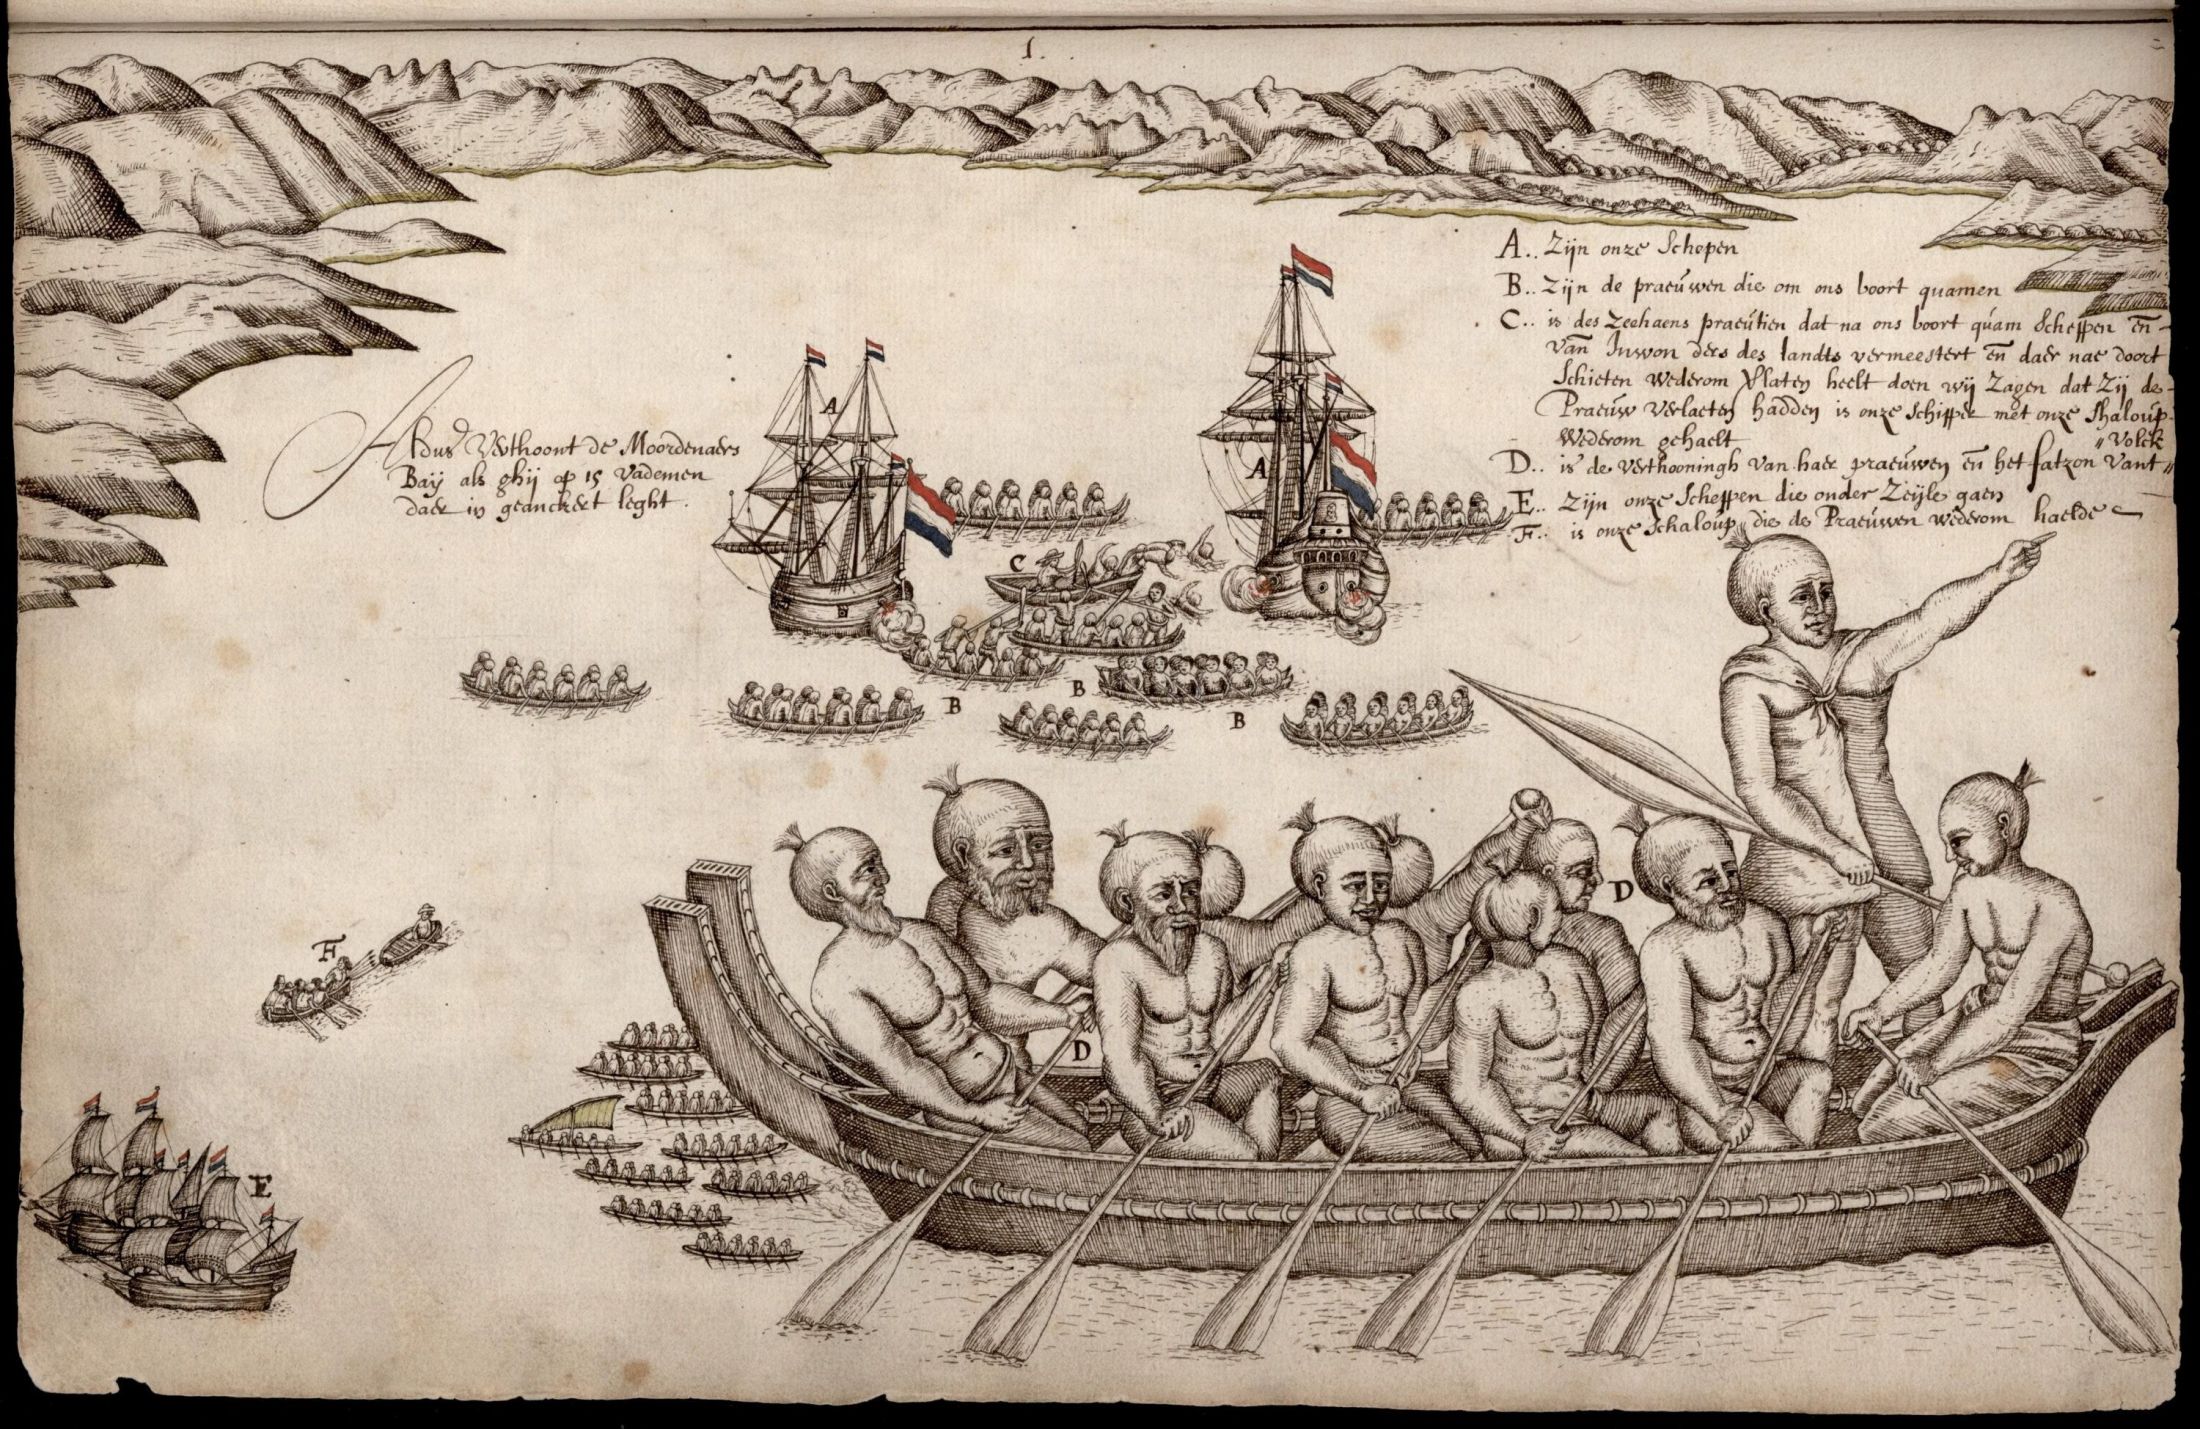 1.
A.. Zijn onze Schepen
B.. Zijn de praeúwen die om ons boort quamen
C.. is des Zeehaens praeútien dat na ons boort qúam Scheppen en̄
van Inwon ders des landts vermeestert en̄ daer nae doort
Schieten wederom Verlaten heelt doen wij Zagen dat Zij de
Praeúw verlaeten hadden is onze Schipper met onze Shaloúp
Wederom gehaelt
D.. is de verthooningh van haer praeúwen en̄ het fatzon vant
"volck
E.. Zijn onze Scheppen die onder Zeijle gaen
F.. is onze Schaloúp die de Praeúwen wederom haelde
Aldus Verthoont de Moordenaers
Baij als ghij op 15 vademen
daer in geanckert leght.
A
A
C
B
B
B
D
D
F
E